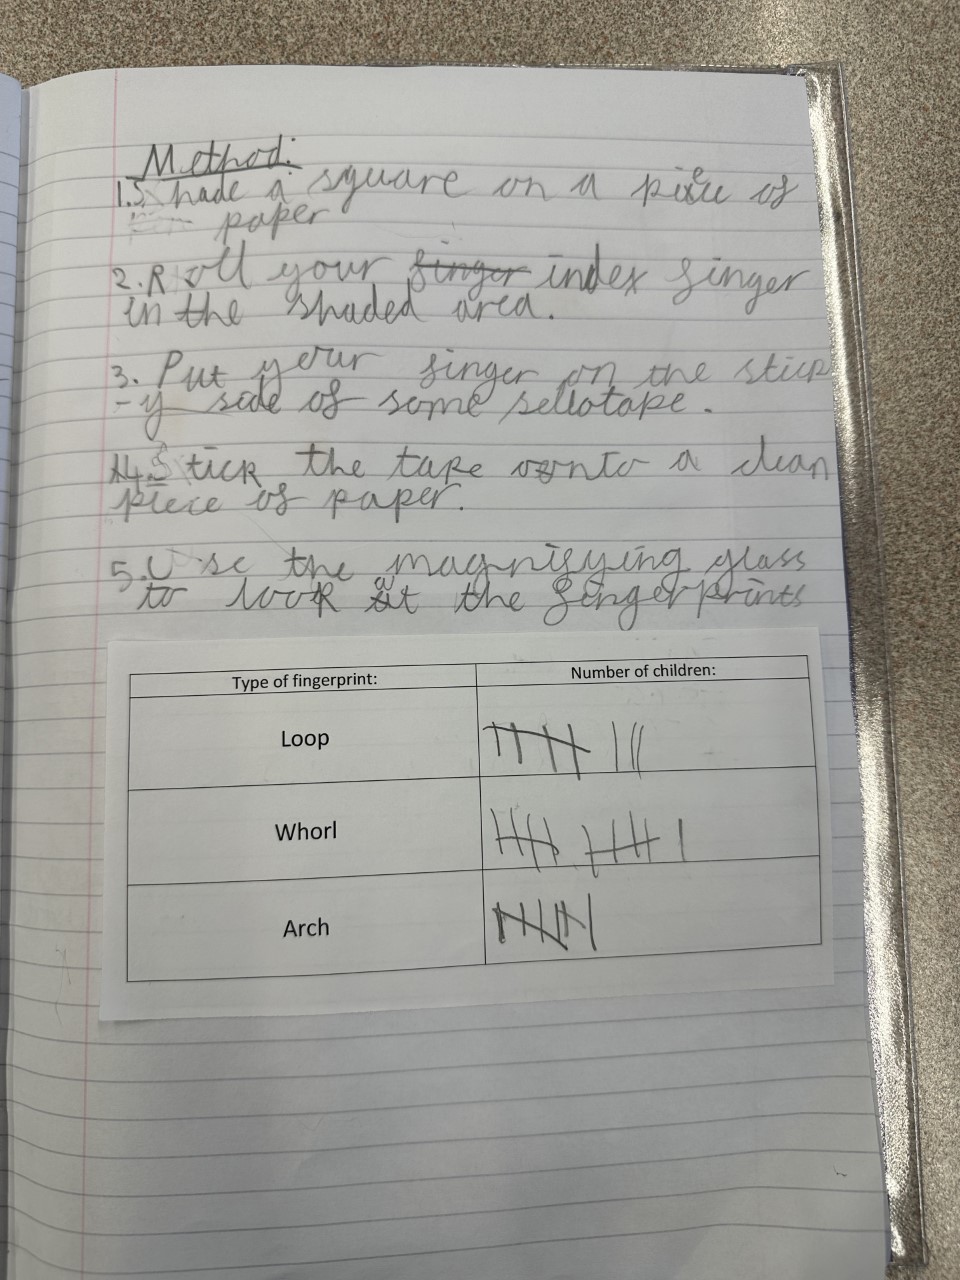 Method:
1. Shade a square on a piece of
paper
2. Roll your finger index finger
in the shaded area.
3. Put your finger on the stick
-y side of some sellotape.
4. Stick the tape onto a clean
piece of paper.
5. Use the magnifying glass
to look at the fingerprints
Type of fingerprint: Number of children:
Loop
Whorl
Arch